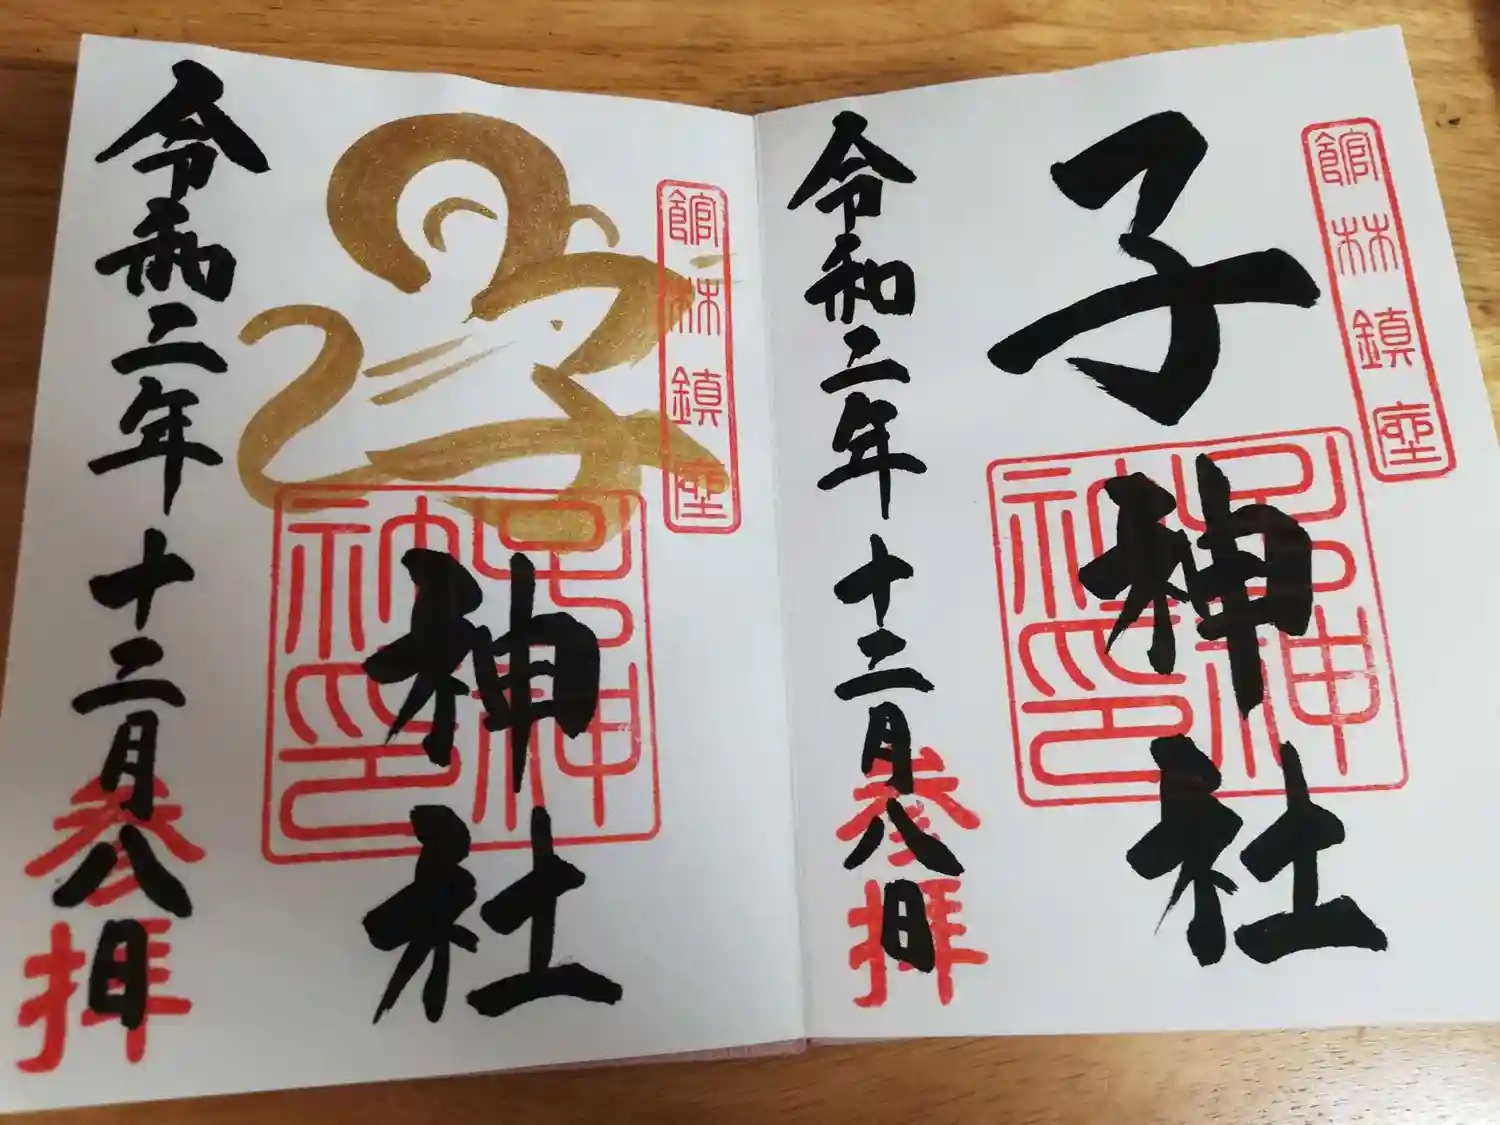 館林鎮座
子神社
令和二年十二月八日
参拝
館林鎮座
子神社
令和二年十二月八日
参拝